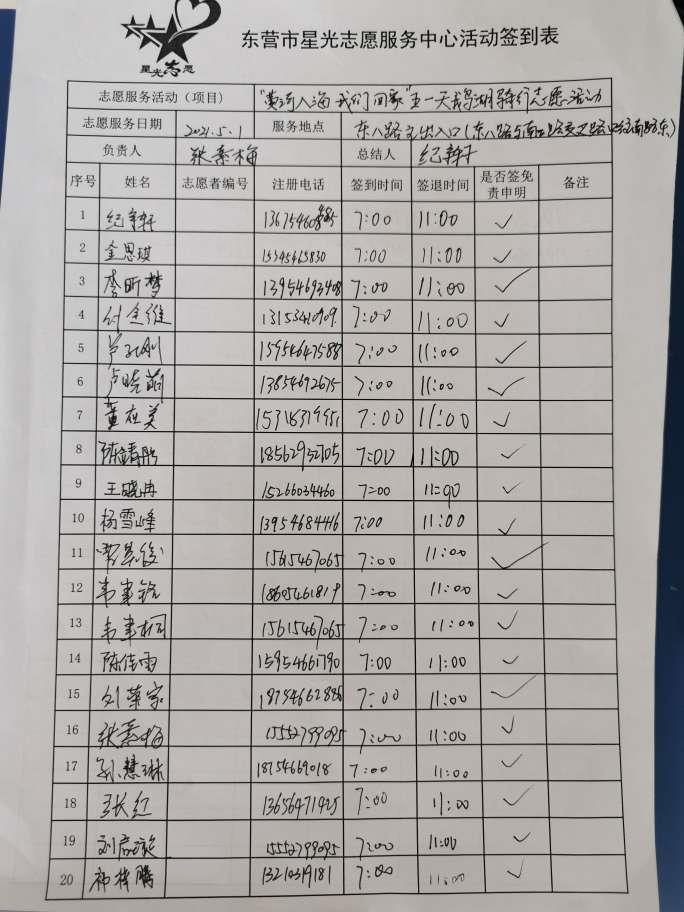 星光志愿
东营市星光志愿服务中心活动签到表
志愿服务活动（项目） "黄河入海 我们回家"五一天鹅湖骑行志愿活动
志愿服务日期 2021.5.1 服务地点 东八路主出入口(东八路与南
负责人 张素梅 总结人 纪轩
序号 姓名 志愿者编号 注册电话 签到时间 签退时间 是否签免责申明 备注
1 7:00 11:00 ✓
2 金思琪 15345465830 7:00 11:00 ✓
3 李昕梦 13954693408 7:00 11:00 ✓
4 付金维 13153410909 7:00 11:00 ✓
5 15954647588 7:00 11:00 ✓
6 卢晓萌 13854692675 7:00 11:00 ✓
7 董在美 7:00 11:00 ✓
8 18562952705 7:00 11:00 ✓
9 王晓冉 15266034460 7:00 11:00 ✓
10 杨雪峰 13954684416 7:00 11:00 ✓
11 15615467065 7:00 11:00 ✓
12 18605461819 7:00 11:00 ✓
13 15615467065 7:00 11:00 ✓
14 陈佳雨 15954661790 7:00 11:00 ✓
15 刘荣家 18754662888 7:00 11:00 ✓
16 张素梅 15552799095 7:00 11:00 ✓
17 孙慧琳 18754669018 7:00 11:00 ✓
18 王长红 13656471425 7:00 11:00 ✓
19 15552799095 7:00 11:00 ✓
20 13210319181 7:00 11:00 ✓